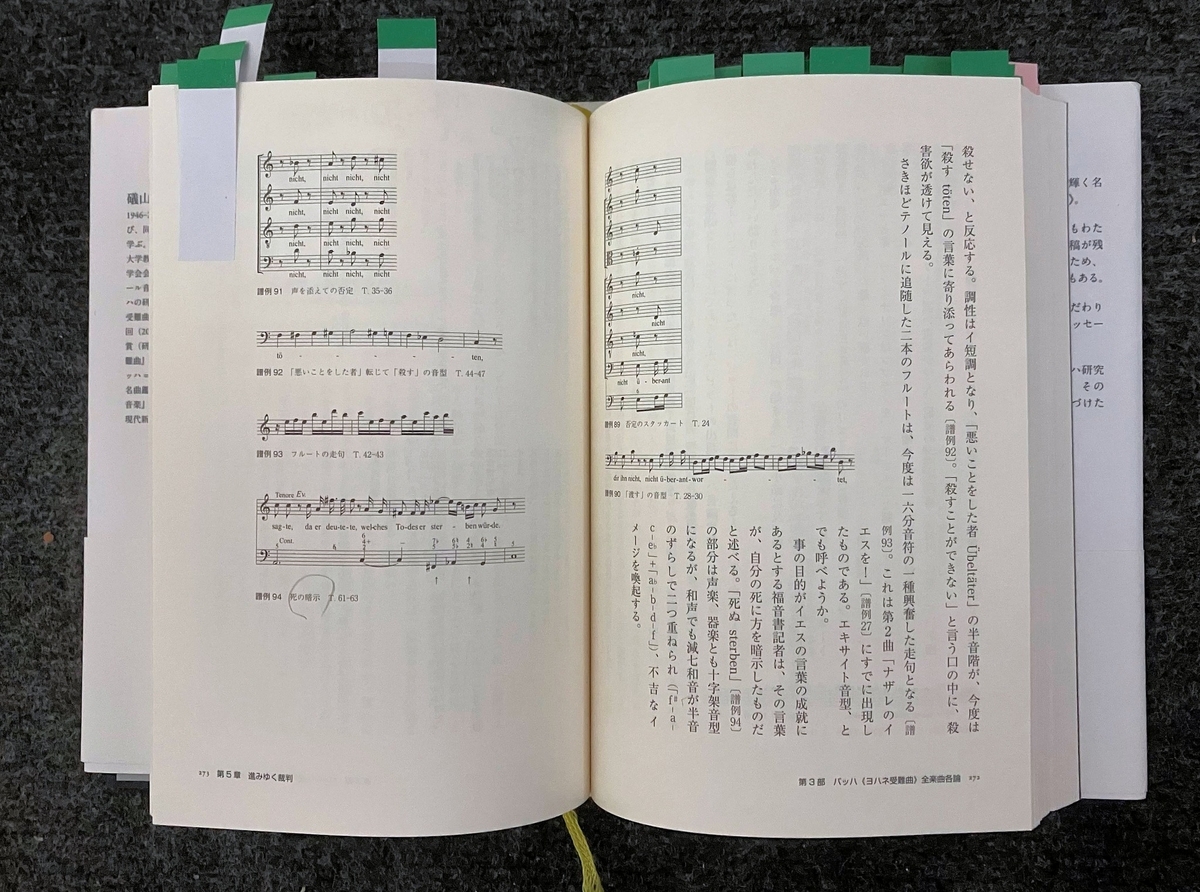 殺せない、と反応する。調性はイ短調となり、「悪いことをした者 Übeltäter」の半音階が、今度は
「殺す töten」の言葉に寄り添ってあらわれる〔譜例92〕。「殺すことができない」と言う口の中に、殺
害欲が透けて見える。
さきほどテノールに追随した二本のフルートは、今度は一六分音符の一種興奮した走句となる〔譜
例93〕。これは第2曲「ナザレのイ
エスを！」〔譜例27〕にすでに出現し
たものである。エキサイト音型、と
でも呼べようか。
事の目的がイエスの言葉の成就に
あるとする福音書記者は、その言葉
が、自分の死に方を暗示したものだ
と述べる。「死ぬ sterben」〔譜例94〕
の部分は声楽、器楽とも十字架音型
になるが、和声でも減七和音が半音
のずらしで二つ重ねられ（「f♯–a–
c–e♭」＋「a♭–b–d–f」）、不吉なイ
メージを喚起する。
nicht,
nicht
nicht,
nicht ü-ber-ant
譜例89 否定のスタッカート T. 24
dir ihn nicht, nicht ü-ber-ant-wor - - - tet,
譜例90 「渡す」の音型 T. 28-30
第3部 バッハ《ヨハネ受難曲》全楽曲各論 272
nicht, nicht nicht, nicht,
nicht, nicht nicht, nicht,
nicht, nicht nicht, nicht,
nicht, nicht nicht, nicht,
譜例91 声を添えての否定 T. 35-36
tö - - - - - ten,
譜例92 「悪いことをした者」転じて「殺す」の音型 T. 44-47
譜例93 フルートの走句 T. 42-43
Tenore Ev.
sag-te, da er deu-te-te, welches To-des er ster - ben wür-de.
Cont.
譜例94 死の暗示 T. 61-63
273 第5章 進みゆく裁判
礒山
1946-
び、同
学ぶ。
大学教
学会会
ール音
ハの研
受難曲
回（20
賞（研
難曲』
ッハ＝
名曲鑑
音楽』
現代新
輝く名
)。
もわた
稿が残
ため、
もある。
だわり
ッセー
ハ研究
その
づけた